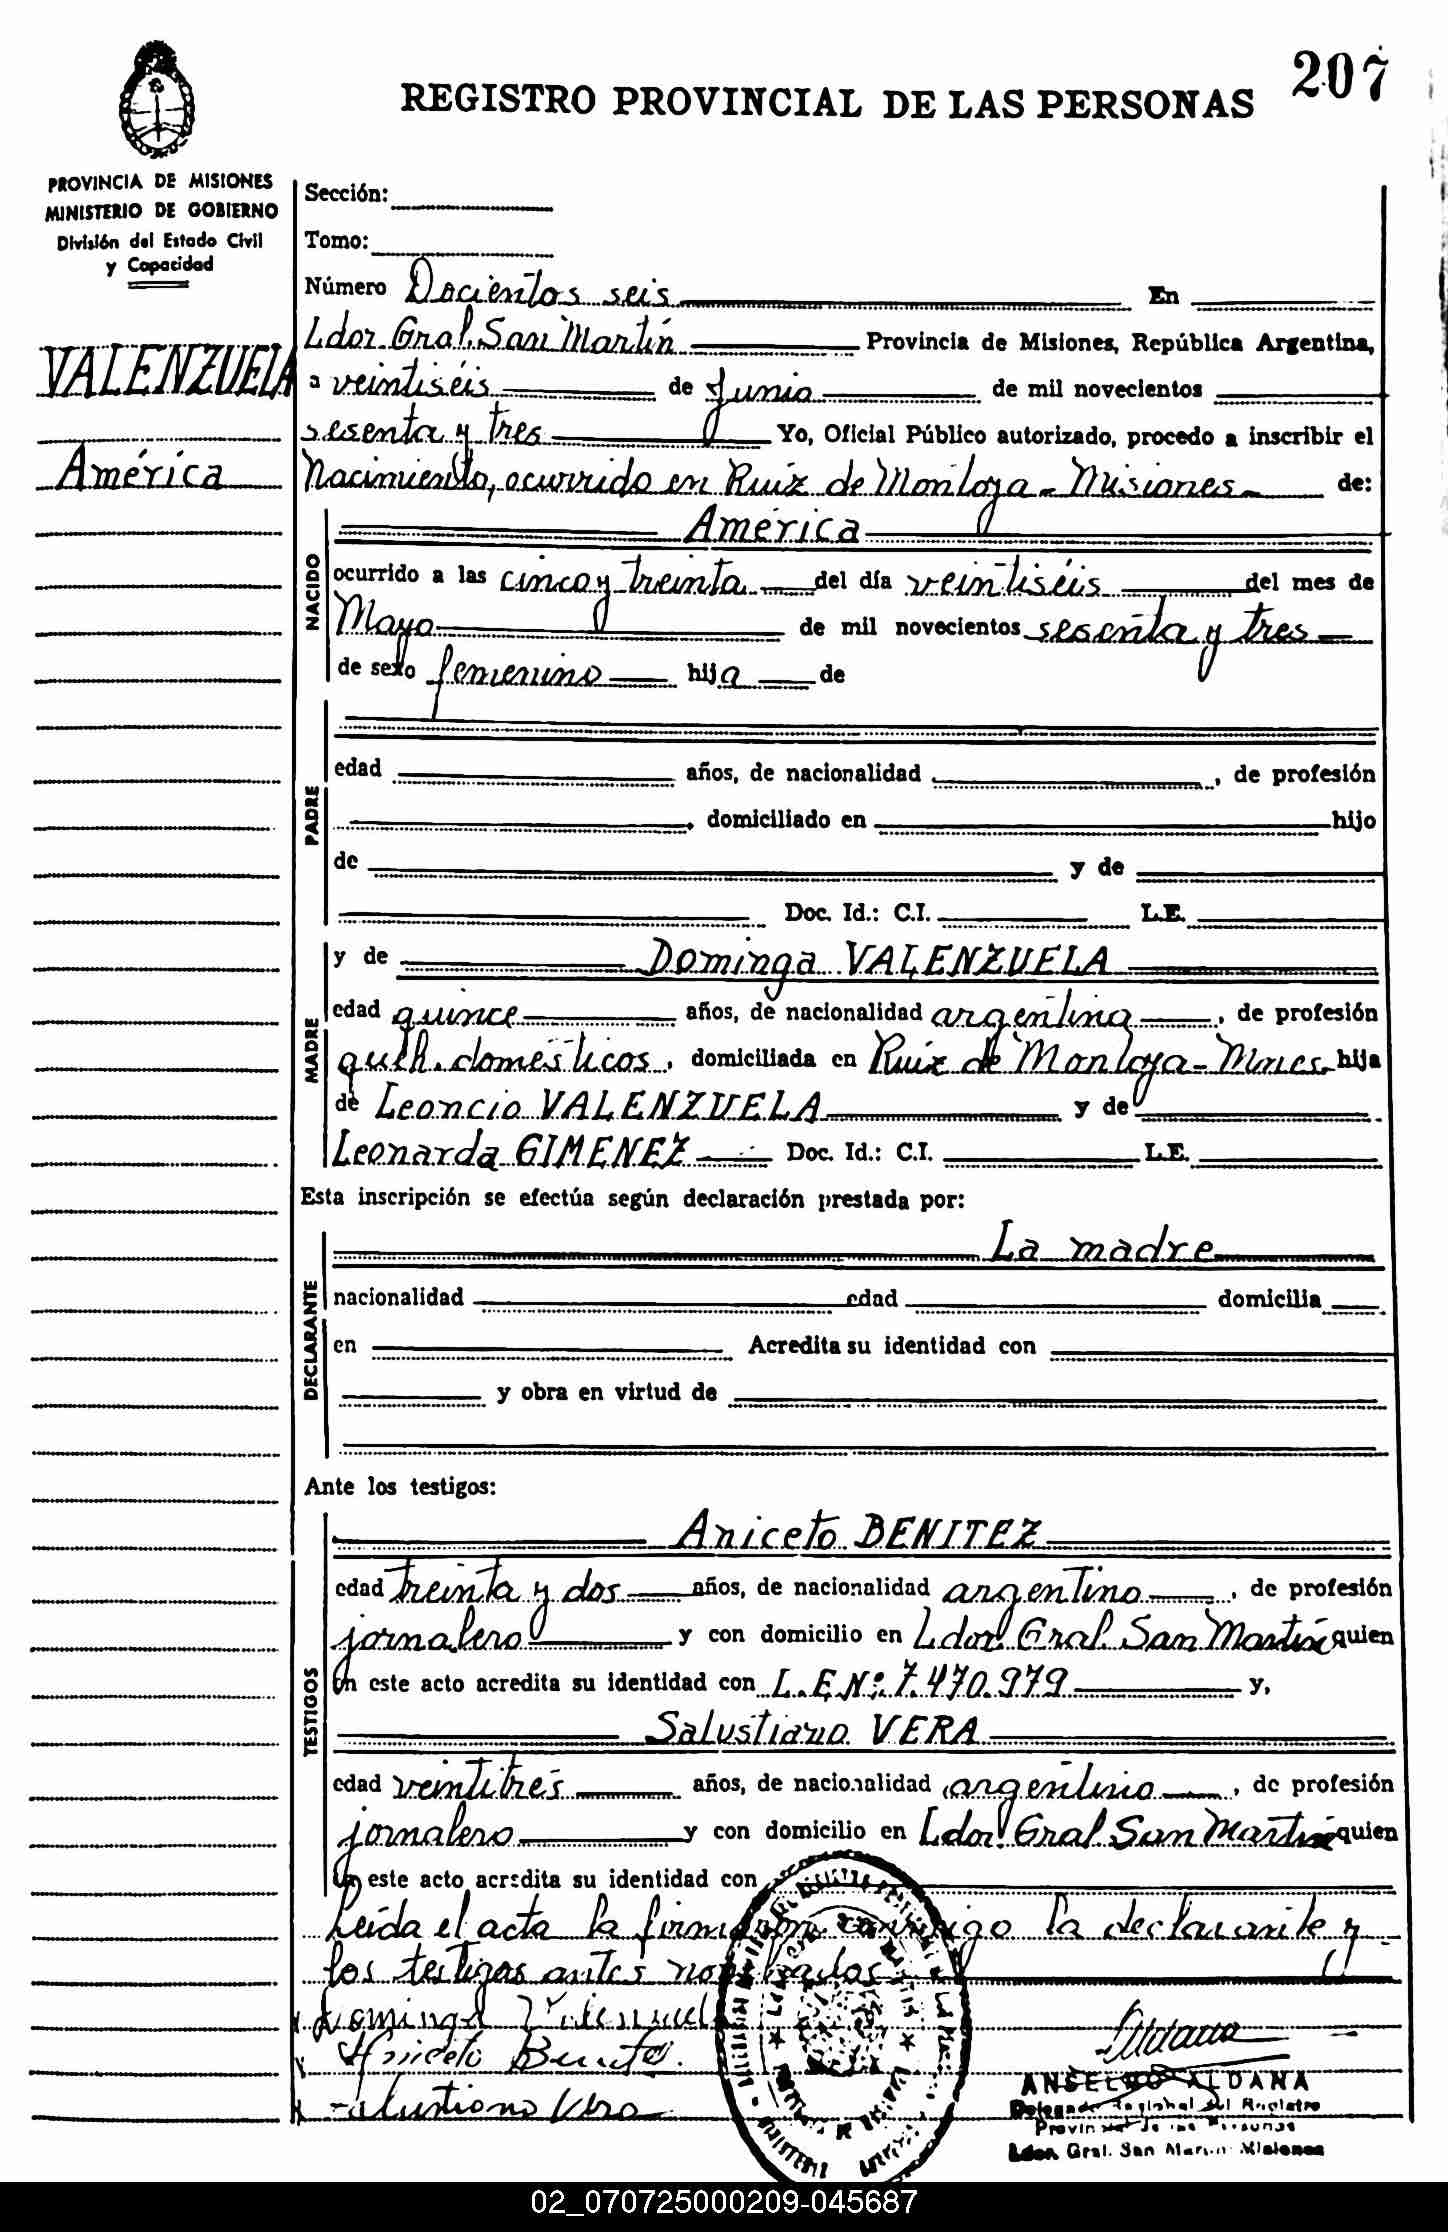 207
REGISTRO PROVINCIAL DE LAS PERSONAS
PROVINCIA DE MISIONES
MINISTERIO DE GOBIERNO
División del Estado Civil
y Capacidad
VALENZUELA
América
Sección:
Tomo:
Número Docientos seis En
Ldor Gral. San Martín Provincia de Misiones, República Argentina,
a veintiséis de Junio de mil novecientos
sesenta y tres Yo, Oficial Público autorizado, procedo a inscribir el
Nacimiento, ocurrido en Ruiz de Montoya - Misiones - de:
NACIDO
América
ocurrido a las cinco y treinta del día veintiséis del mes de
Mayo de mil novecientos sesenta y tres
de sexo femenino hija de
PADRE
edad años, de nacionalidad , de profesión
, domiciliado en hijo
de y de
Doc. Id.: C.I. L.E.
MADRE
y de Dominga VALENZUELA
edad quince años, de nacionalidad argentina , de profesión
queh. domésticos, domiciliada en Ruiz de Montoya - Mnes. hija
de Leoncio VALENZUELA y de
Leonarda GIMENEZ Doc. Id.: C.I. L.E.
Esta inscripción se efectúa según declaración prestada por:
DECLARANTE
La madre
nacionalidad edad domicilia
en Acredita su identidad con
y obra en virtud de
Ante los testigos:
TESTIGOS
Aniceto BENITEZ
edad treinta y dos años, de nacionalidad argentino , de profesión
jornalero y con domicilio en Ldor. Gral. San Martín quien
en este acto acredita su identidad con L.E.Nº: 7.470.979 y,
Salustiano VERA
edad veintitrés años, de nacionalidad argentino , de profesión
jornalero y con domicilio en Ldor. Gral San Martín quien
en este acto acredita su identidad con
Leída el acta la firmaron conmigo la declarante y
los testigos antes nombrados
Dominga Valenzuela
Aniceto Benitez.
Salustiano Vera
ANSELMO ALDANA
Delegado Regional del Registro
Provincial de las Personas
Ldor. Gral. San Martín Misiones
02_070725000209-045687